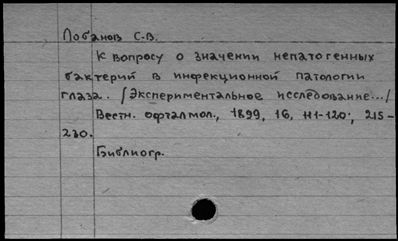 Лобанов С.В.
К вопросу о значении непатогенных
бактерий в инфекционной патологии
глаза. /Экспериментальное исследование.../
Вестн. офталмол., 1899, 16, н1-120, 215-
230.
Библиогр.